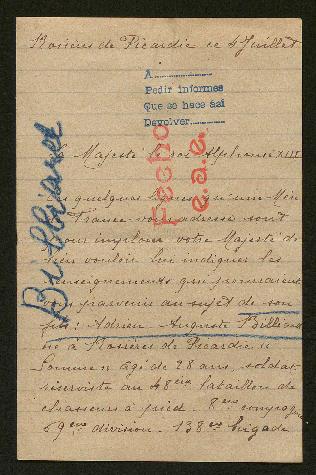 Rosières de Picardie ce 4 Juillet
A
Pedir informes
Que se hace así
Devolver
Fecho
e.a.e.
Billiard
Majesté le roi Alphonse XIII
quelques lignes qu'une Mère
France vous adresse sont
pour implorer votre Majesté de
bien vouloir lui indiquer les
renseignements que pourraient
vous parvenir au sujet de son
fils: Adrien Auguste Billiard
né à Rosières de Picardie
Somme âgé de 28 ans, soldat
réserviste au 48ème bataillon de
chasseurs à pied. 8ème compagnie
69ème division. 138ème brigade